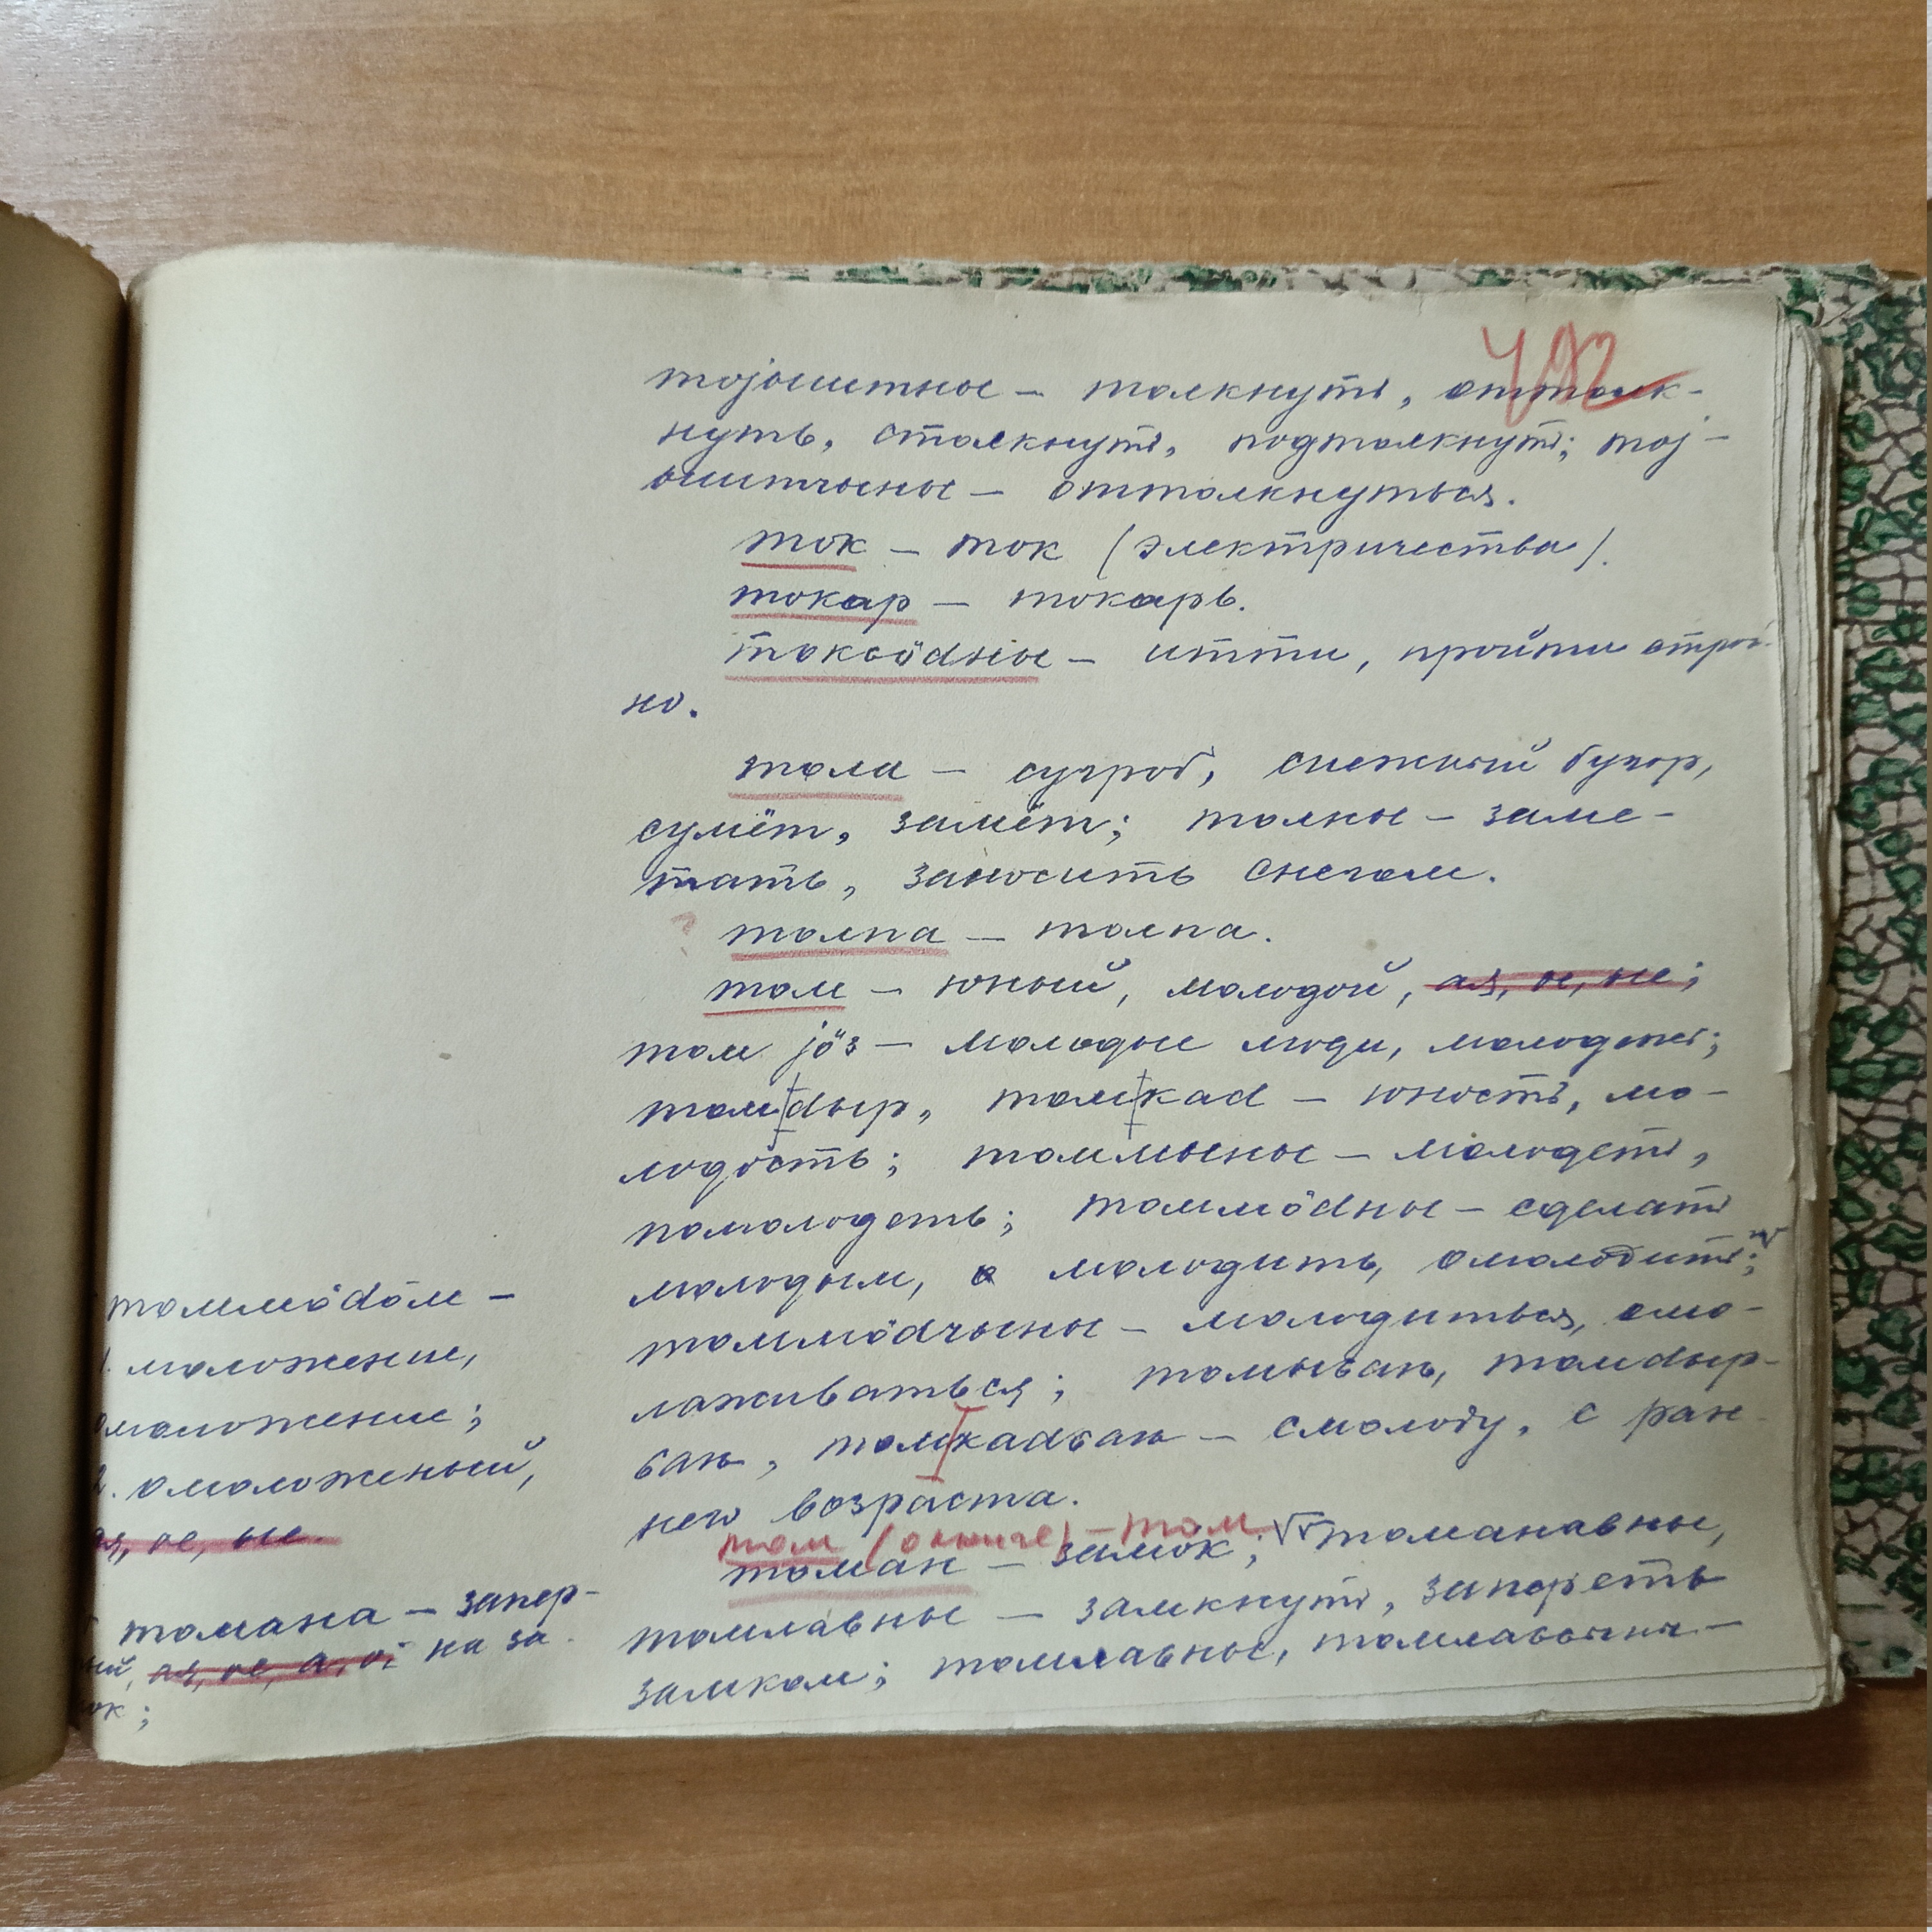 492
тојыштны – толкнуть, оттолк-
нуть, столкнуть, подтолкнуть; тој-
ыштчыны – оттолкнуться.
ток – ток (электричества).
токар – токарь.
итти, пройти строй-
но.
тола – сугроб, снежный бугор,
сумёт, замёт; толны – заме-
тать, заносить снегом.
? толпа – толпа.
том – юный, молодой, ая, ое, ые;
том јӧз – молодые люди, молодежь;
том|dыр, том|каd – юность, мо-
лодость; томмыны – молодеть,
помолодеть; томмӧdны – сделать
молодым, молодить, омолодить; v
томмӧdчыны – молодиться, омо-
лаживаться; томысаԋ, томdыр-
саԋ, том|каdсаԋ – смолоду, с ран-
него возраста.
том – том
томан – замок; vv томанавны,
томлавны – замкнуть, запереть
замком; томлавны,
томмӧdӧм –
1. моложение,
омоложение;
2. омоложеный,
ая, ое, ые.
томана – запер-
ый, ая, ое, а, о; на за-
ок;